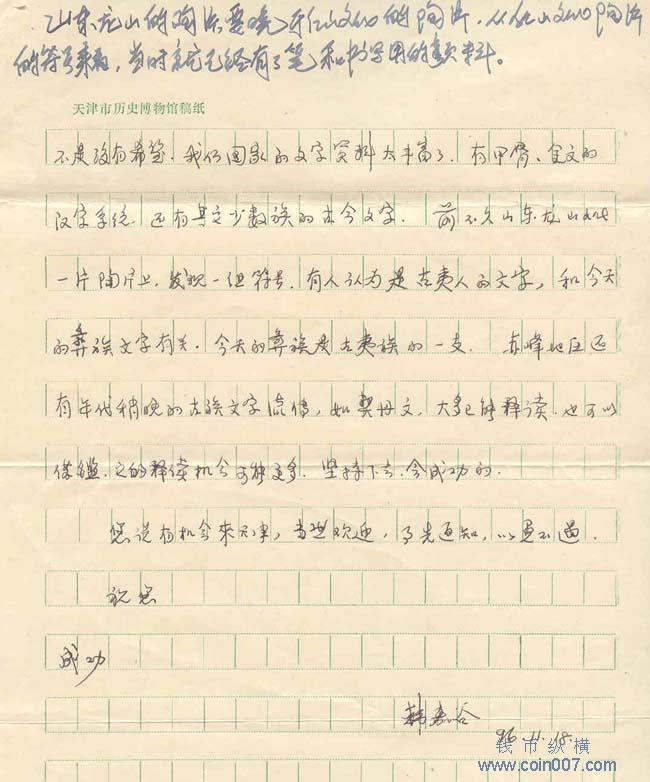 山东龙山的陶片要晚于仰山文化的陶片，从仰山文化陶片
的符号来看，当时就已经有了笔和书写用的颜料。
天津市历史博物馆稿纸
不是没有希望。我们国家的文字资料太丰富了。有甲骨、金文的
汉字系统。还有其它少数族的古今文字。前不久山东龙山文化
一片陶片上，发现一组符号。有人认为是古夷人的文字，和今天
的彝族文字有关。今天的彝族是古夷族的一支。赤峰地区还
有年代稍晚的古族文字流传，如契丹文，大多已能释读。也可以
借鉴。它的释读机会可能更多。坚持下去，会成功的。
您说有机会来天津，当然欢迎，事先通知，以免不遇。
祝您
成功
韩嘉谷
96.11.18.
钱币纵横
www.coin007.com